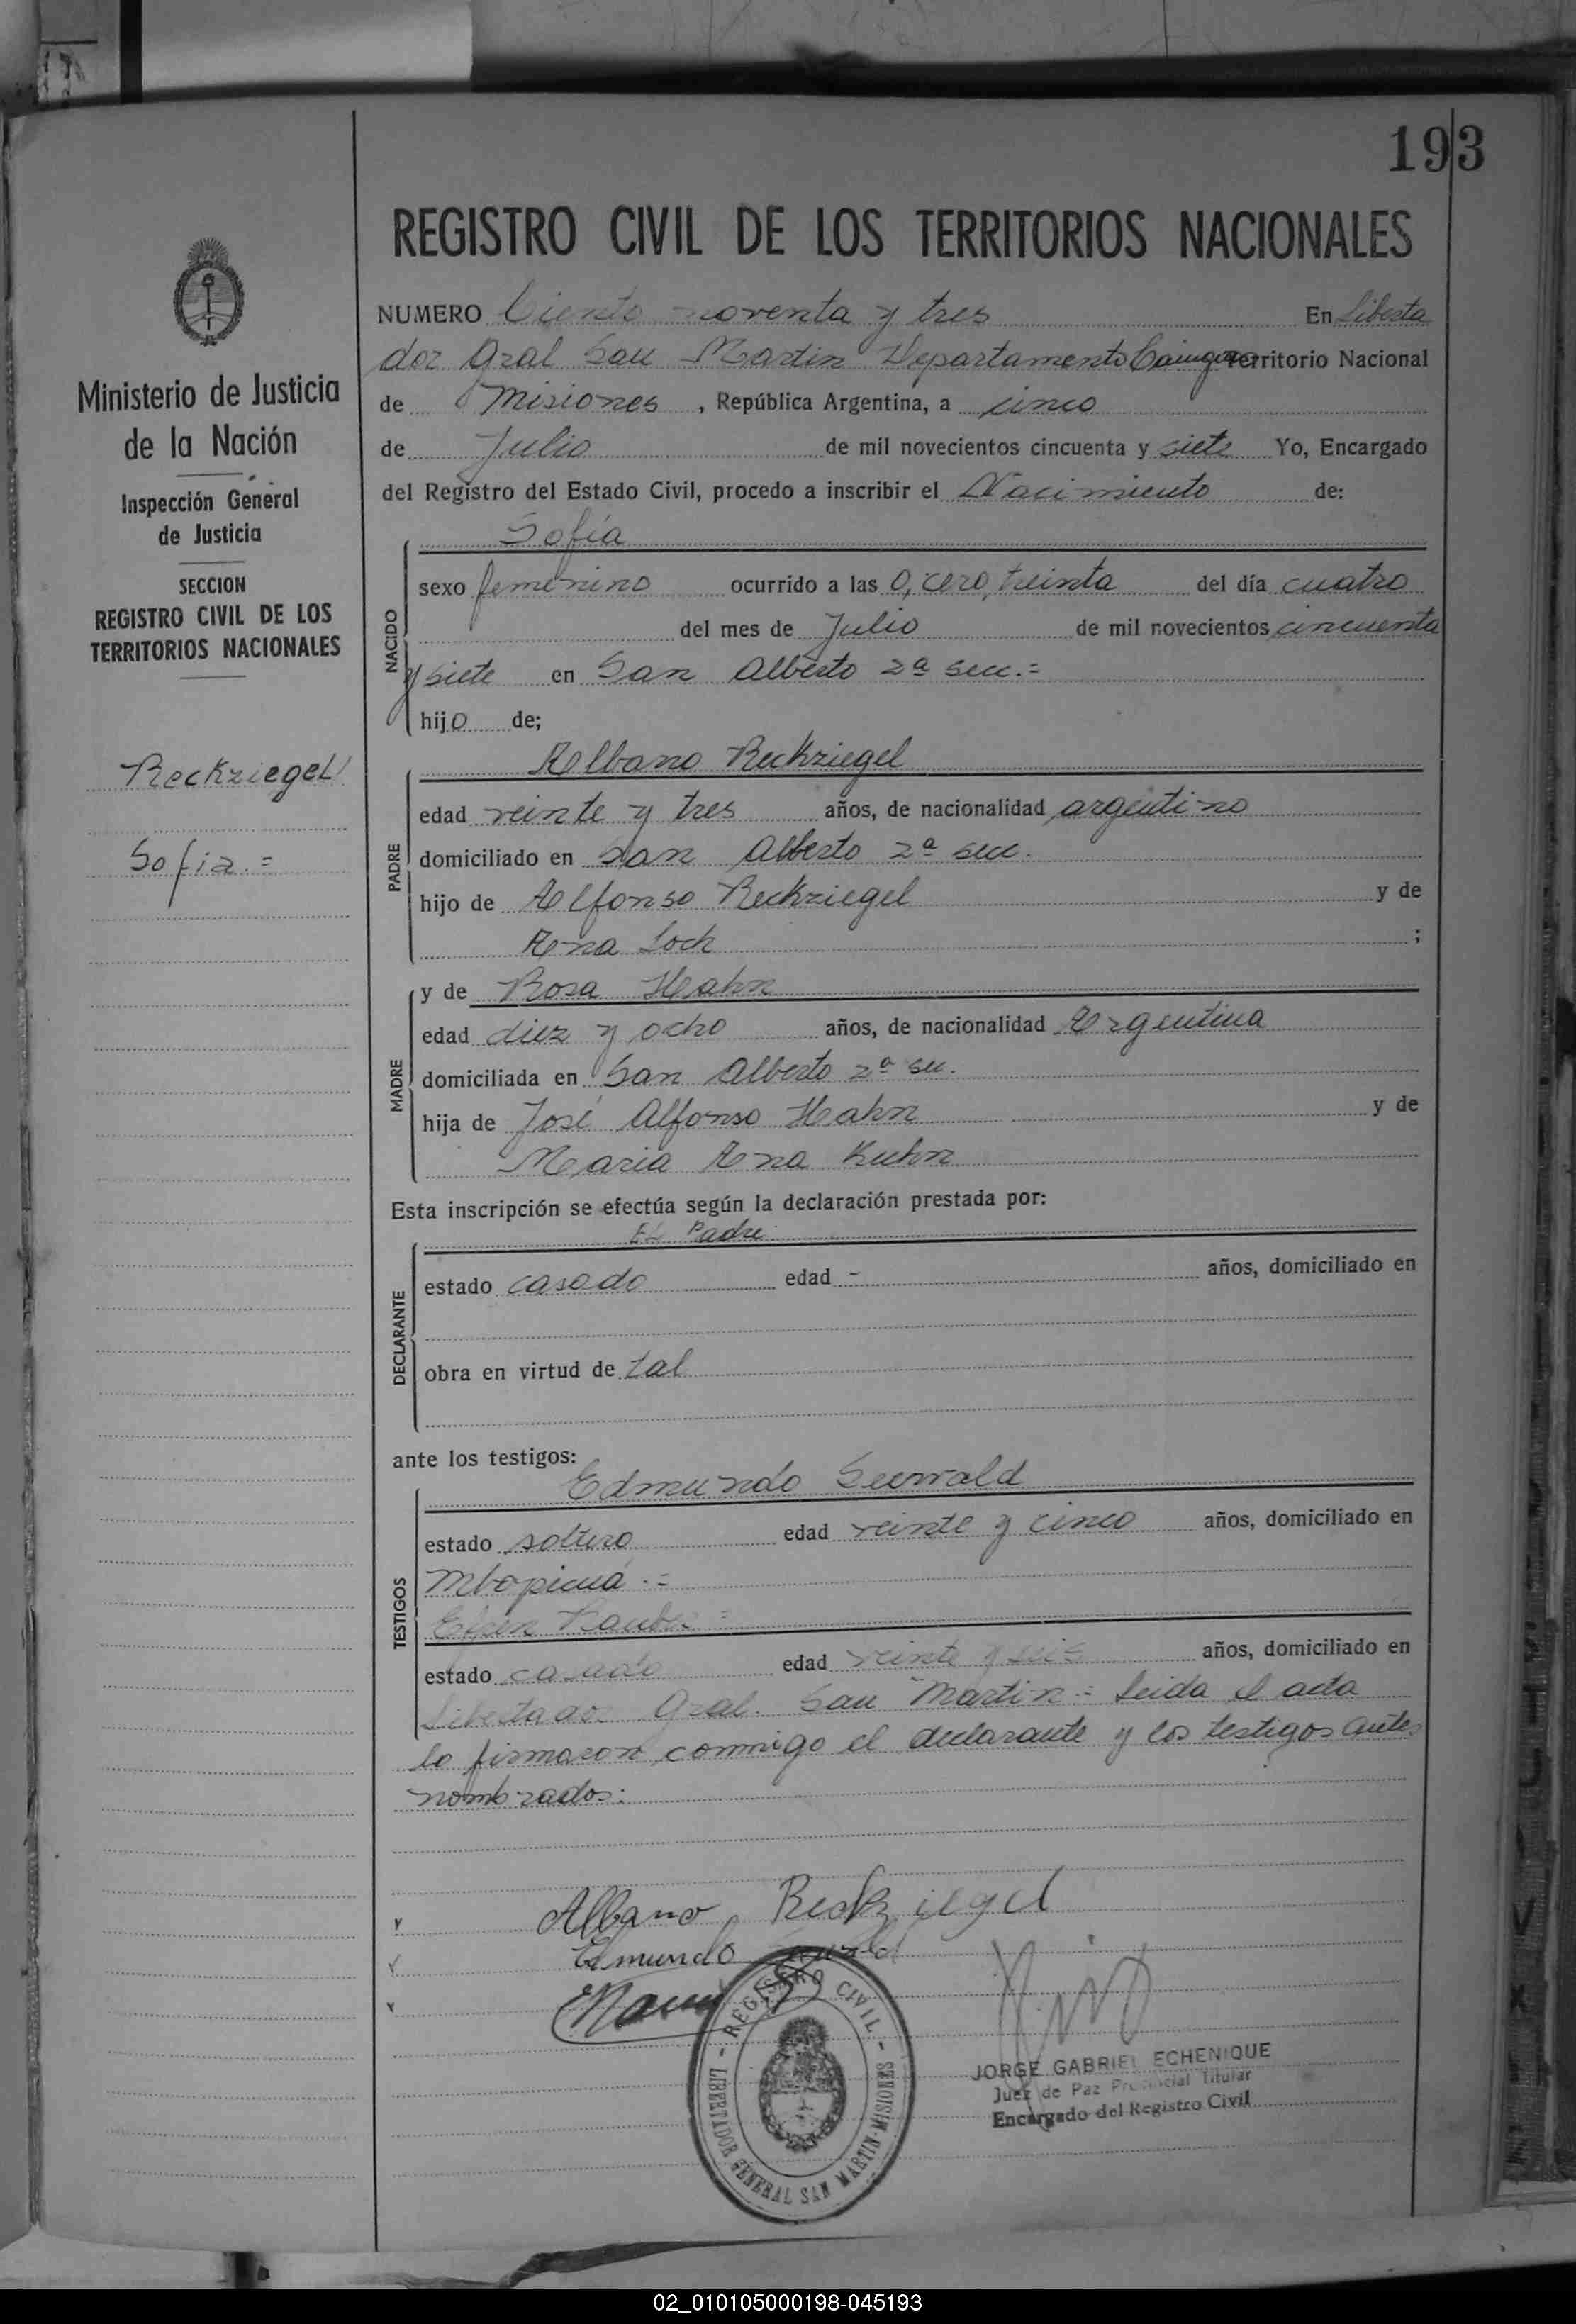 193
REGISTRO CIVIL DE LOS TERRITORIOS NACIONALES
NUMERO Ciento noventa y tres En Liberta
dor Gral San Martin Departamento Territorio Nacional
de Misiones, República Argentina, a cinco
de Julio de mil novecientos cincuenta y siete Yo, Encargado
del Registro del Estado Civil, procedo a inscribir el Nacimiento de:
Ministerio de Justicia
de la Nación
Inspección General
de Justicia
SECCION
REGISTRO CIVIL DE LOS
TERRITORIOS NACIONALES
Reckziegel
Sofia.=
NACIDO
Sofía
sexo femenino ocurrido a las 0, cero, treinta del día cuatro
del mes de Julio de mil novecientos cincuenta
y siete en San Alberto 2ª secc.=
hijo de;
PADRE
Albano Reckziegel
edad veinte y tres años, de nacionalidad argentino
domiciliado en San Alberto 2ª secc.
hijo de Alfonso Reckziegel y de
Ana Loch ;
MADRE
y de Rosa Hahn
edad diez y ocho años, de nacionalidad Argentina
domiciliada en San Alberto 2ª sec.
hija de José Alfonso Hahn y de
Maria Ana Kuhn
Esta inscripción se efectúa según la declaración prestada por:
DECLARANTE
El Padre
estado casado edad - años, domiciliado en
obra en virtud de tal
ante los testigos:
TESTIGOS
Edmundo
estado soltero edad veinte y cinco años, domiciliado en
Mbopicuá.=
estado casado edad veinte y seis años, domiciliado en
Libertador Gral. San Martin = Leida el acta
la firmaron conmigo el declarante y los testigos antes
nombrados:
Albano Reckziegel
Edmundo
REGISTRO CIVIL
LIBERTADOR GENERAL SAN MARTIN-MISIONES
JORGE GABRIEL ECHENIQUE
Juez de Paz Provincial Titular
Encargado del Registro Civil
02_010105000198-045193